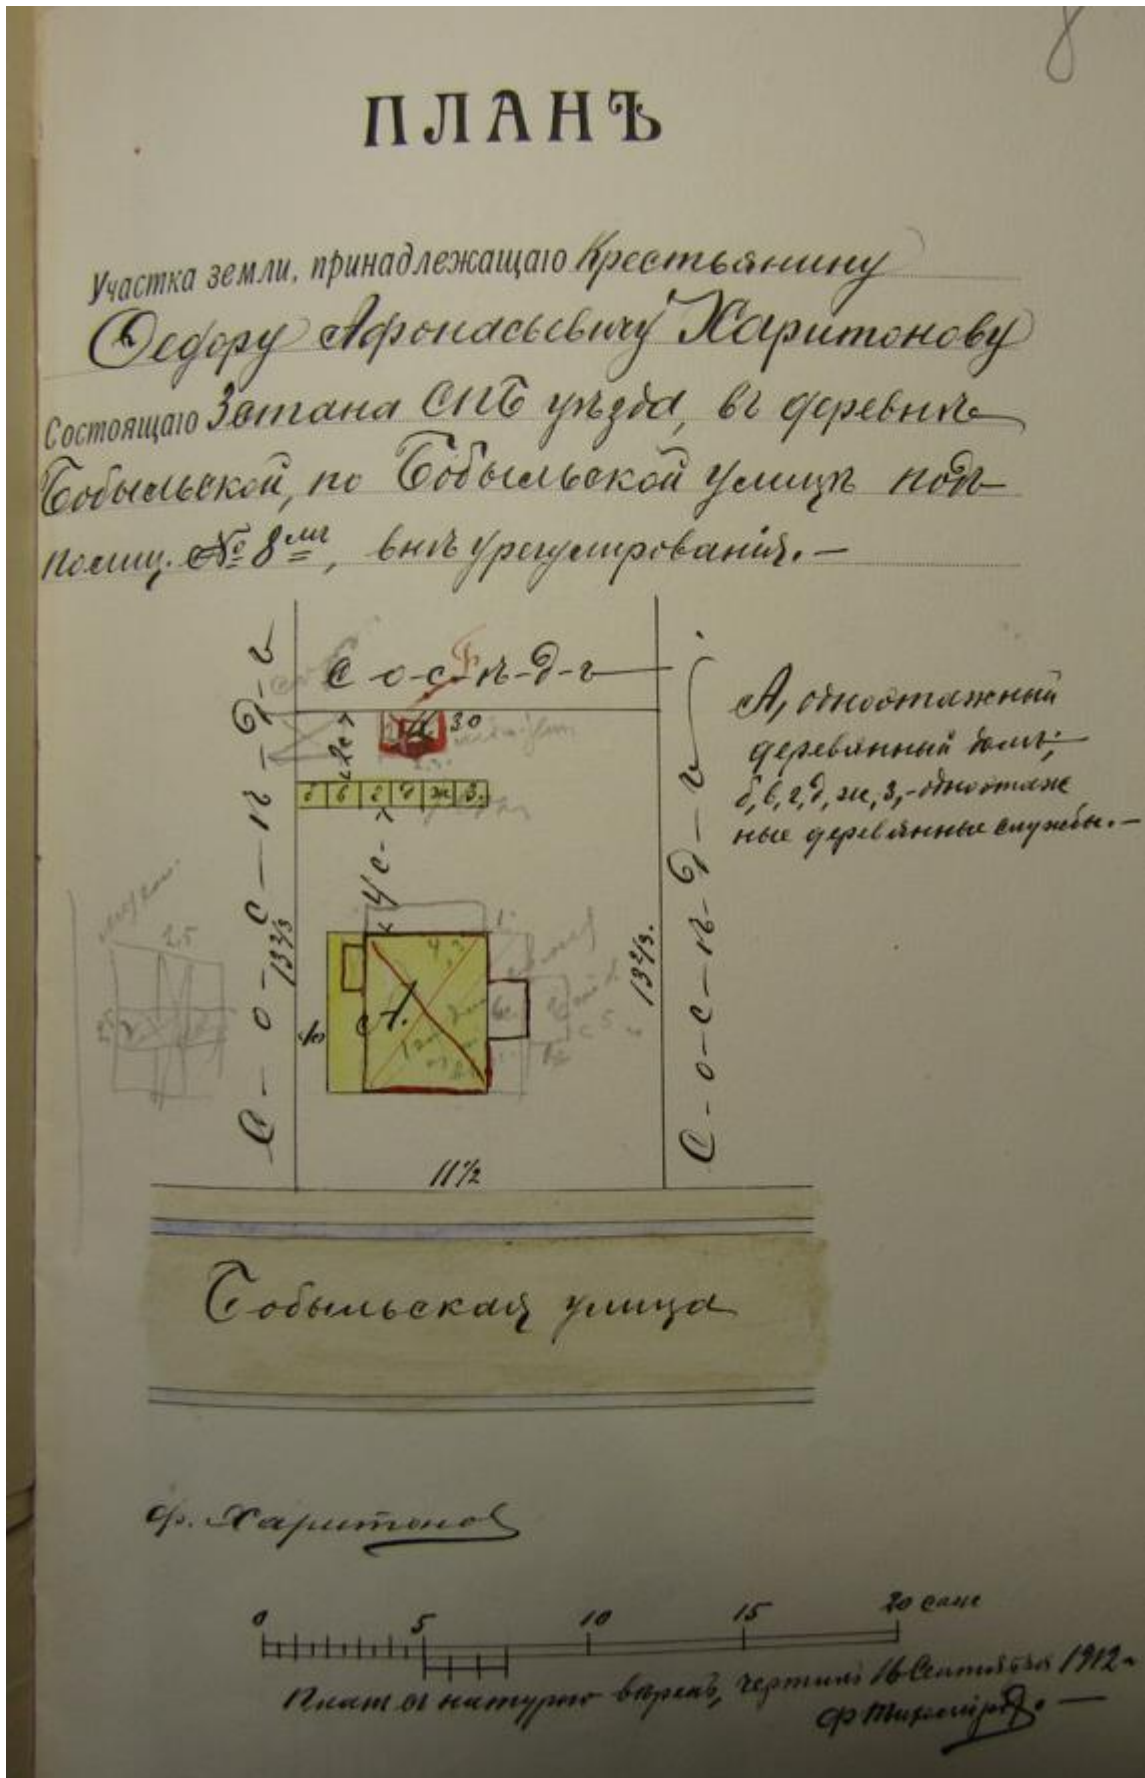 8
ПЛАНЪ
Участка земли, принадлежащаго Крестьянину
Федору Афонасьевичу Харитонову
Состоящаго 3 стана СПБ уѣзда, въ деревнѣ
Бобыльской, по Бобыльской улицѣ подъ
полиц. № 8мъ, внѣ урегулированія.—
С-о-с-ѣ-д-ъ
С-о-с-ѣ-д-ъ
С-о-с-ѣ-д-ъ
2с
30
б в г д ж з.
4 с
А, одноэтажный
деревянный домъ;
б, в, г, д, ж, з,-одноэтаж
ные деревянные службы.—
2,5
13⅔
13⅔.
А.
11½
Бобыльская улица
Ф. Харитонов
0 5 10 15 20 саж
Планъ съ натурою вѣренъ, чертилъ 16 Сентября 1912 г